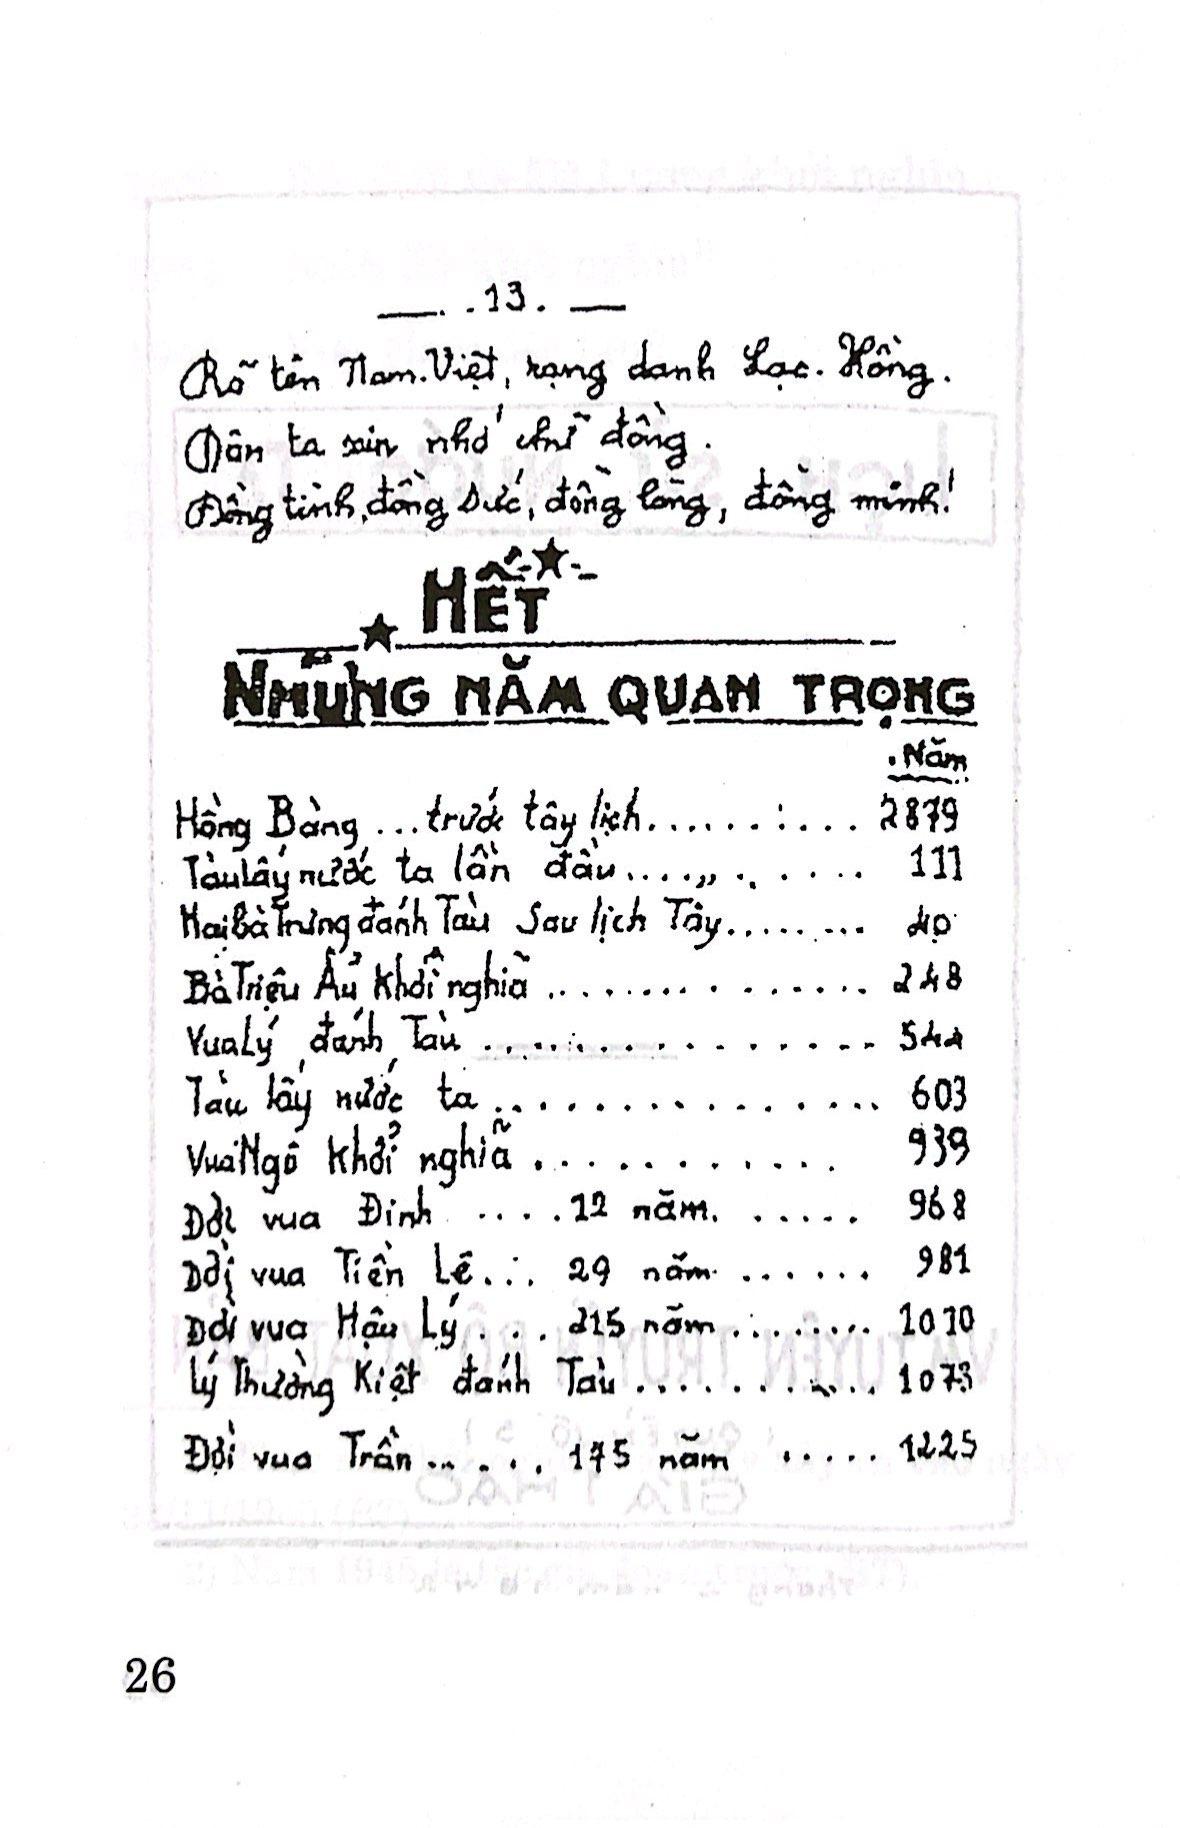 . 13 .
Rõ tên Nam.Việt, rạng danh Lạc. Hồng.
Dân ta xin nhớ chữ đồng.
Đồng tình, đồng sức, đồng lòng, đồng minh!
HẾT
NHỮNG NĂM QUAN TRỌNG
Năm
Hồng Bàng ... trước tây lịch.......... 2879
Tàu lấy nước ta lần đầu....„...... 111
Hai bà Trưng đánh Tàu Sau lịch Tây........ 40
Bà Triệu Ẩu khởi nghĩa .............. 248
Vua Lý đánh Tàu ................ 544
Tàu lấy nước ta ................ 603
Vua Ngô khởi nghĩa ............ 939
Đời vua Đinh .....12 năm. ..... 968
Đời vua Tiền Lê.... 29 năm ...... 981
Đời vua Hậu Lý . . . 215 năm ........ 1010
Lý Thường Kiệt đánh Tàu .......... 1073
Đời vua Trần...... 175 năm ..... 1225
26